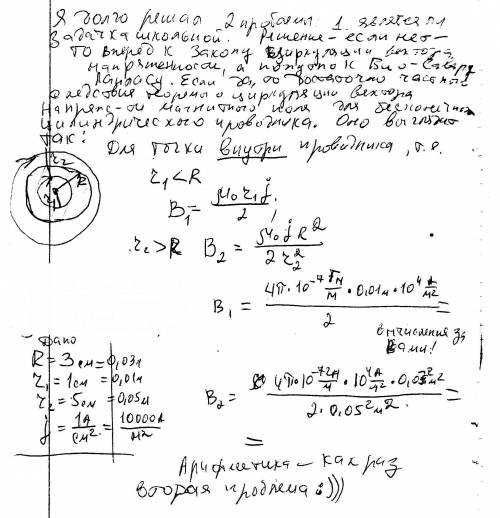 Я долго решал 2 проблемы: 1. является ли
задачка школьной. Решение - если нет-
то вперед к Закону циркуляции вектора
напряженности, а попутно к Био-Савару
Лапласу. Если да, то достаточно частного
следствия теоремы о циркуляции вектора
напряж-ти магнитного поля для бесконечного
цилиндрического проводника. Оно выглядит
так:
Для точки внутри проводника, т.е.
r₁ < R
B₁ = μ₀ r₁ j / 2
r₂ > R B₂ = μ₀ j R² / 2 r₂²
B₁ = 4π · 10⁻⁷ Гн/м · 0,01м · 10⁴ А/м² / 2 =
вычисления за
Вами!
Дано
R = 3 см = 0,03м
r₁ = 1см = 0,01м
r₂ = 5см = 0,05м
j = 1А/см² = 10000А/м²
B₂ = 4π · 10⁻⁷ · 10⁴ А/м² · 0,03² м² / 2 · 0,05² м²
=
Арифметика - как раз
вторая проблема :)))
r₂
R
r₁